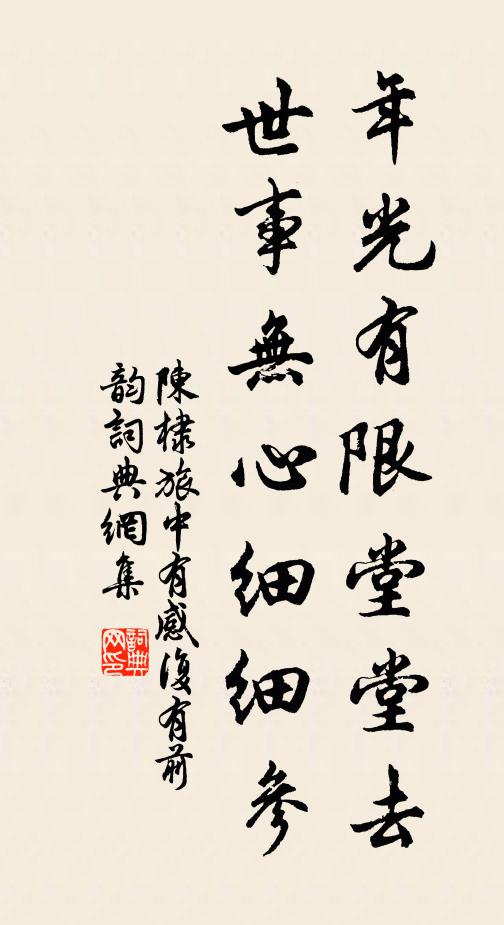 年光有限堂堂去
世事無心細細參
陳棣旅中有感復有前
韵詞典網集
詞典
网印